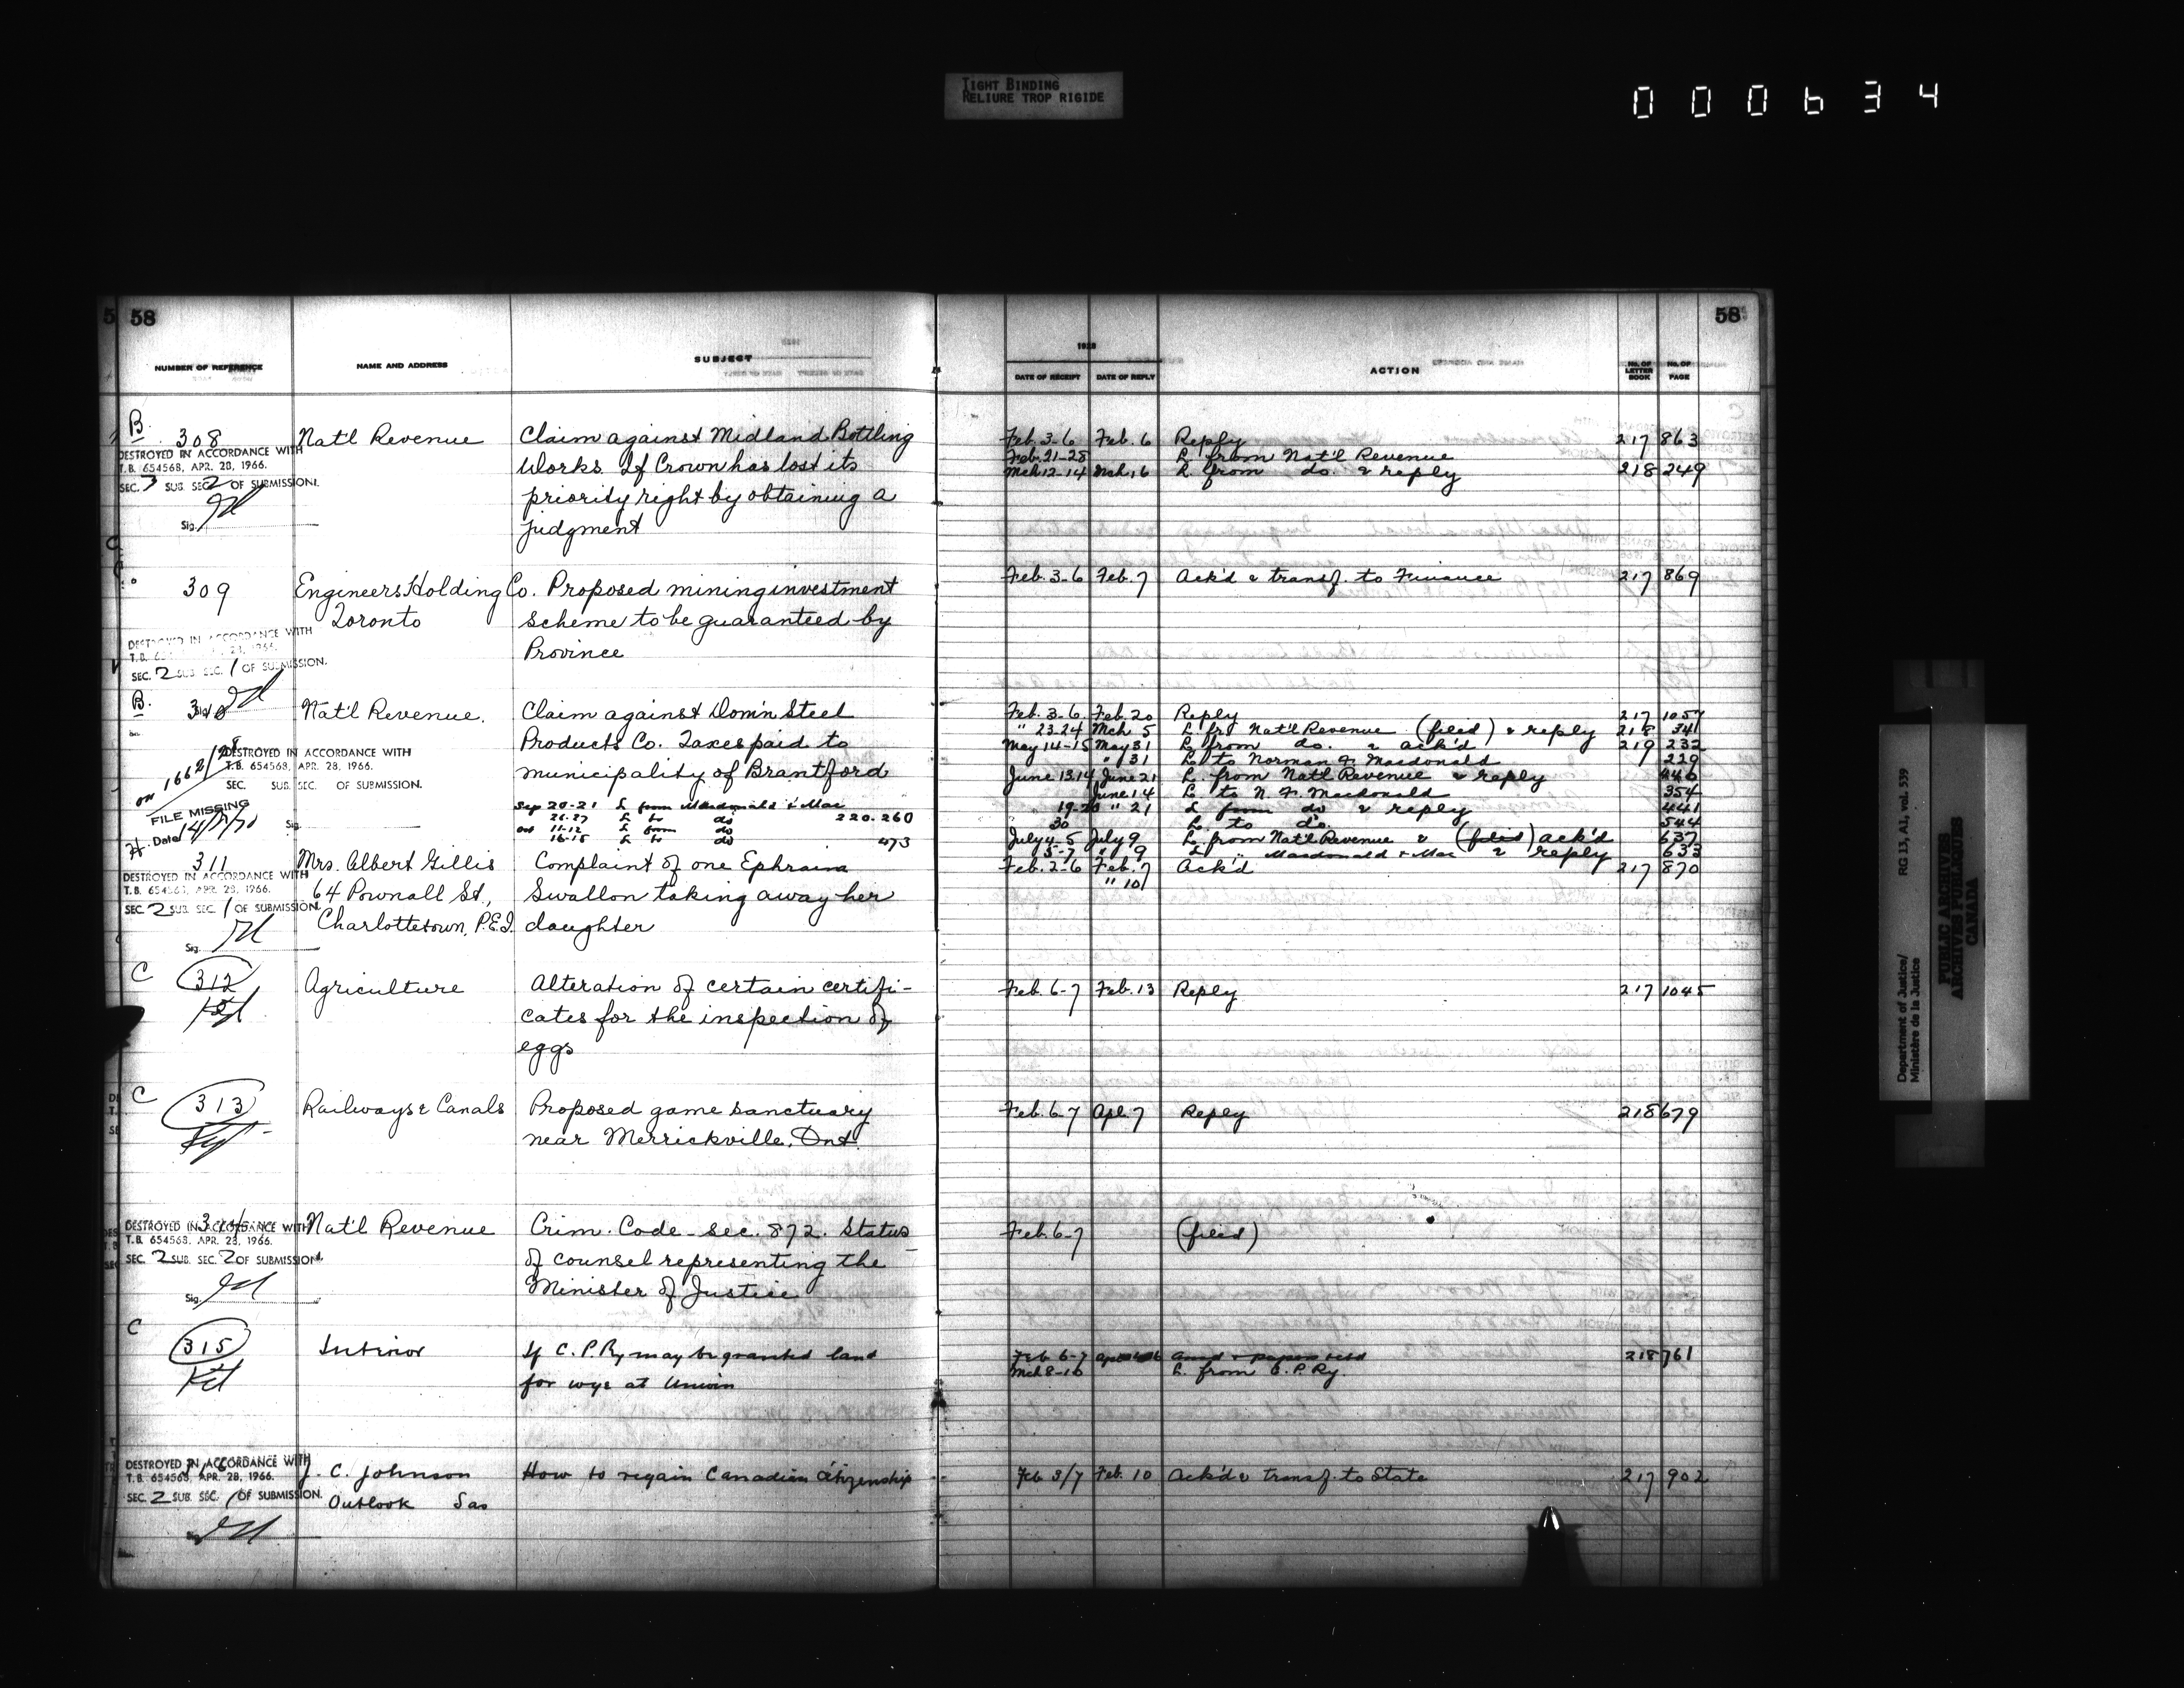 TIGHT BINDING
RELIURE TROP RIGIDE
000634
58
58
NUMBER OF REFERENCE NAME AND ADDRESS SUBJECT
1928
DATE OF RECEIPT DATE OF REPLY ACTION NO. OF LETTER BOOK NO. OF PAGE
B. 308 Nat'l Revenue Claim against Midland Bottling Feb. 3-6 Feb. 6 Reply 217 863
DESTROYED IN ACCORDANCE WITH Works. If Crown has lost its Feb. 21-28 L. from Nat'l Revenue
T.B. 654568, APR. 28, 1966. priority right by obtaining a Mch 12-14 Mch 16 L. from do. & reply 218 249
SEC. 3 SUB. SEC. 2 OF SUBMISSION. judgment
Sig.
309 Engineers Holding Co. Proposed mining investment Feb. 3-6 Feb. 7 Ack'd & transf. to Finance 217 869
Toronto scheme to be guaranteed by
DESTROYED IN ACCORDANCE WITH Province
T.B. 28, 1966.
SEC. 2 SUB. SEC. 1 OF SUBMISSION.
B. 310 Nat'l Revenue. Claim against Dom'n Steel Feb. 3-6 Feb. 20 Reply 217 1057
Products Co. Taxes paid to " 23-24 Mch. 5 L. fr Nat'l Revenue (filed) & reply 218 341
municipality of Brantford May 14-15 May 31 L. from do. & ack'd 219 232
DESTROYED IN ACCORDANCE WITH " 31 L. to Norman F. Macdonald 229
T.B. 654568, APR. 28, 1966. June 13.14 June 21 L. from Nat'l Revenue & reply 446
SEC. SUB. SEC. OF SUBMISSION. June 14 L. to N. F. Macdonald 354
on 1662/28 Sep 20-21 L from Macdonald & Mac 19-20 " 21 L from do & reply 441
FILE MISSING 26-27 L to do 220.260 30 L. to do. 544
Date 14/7/71 Oct 11-12 L from do July 4-5 July 9 L. from Nat'l Revenue & (filed) ack'd 637
Sig. 16-18 L to do 473 5-7 " 9 L " Macdonald & Mac & reply 633
311 Mrs. Albert Gillis Complaint of one Ephraim Feb. 2-6 Feb. 7 Ack'd 217 870
DESTROYED IN ACCORDANCE WITH 64 Pownall St., Swallon taking away her " 10
T.B. 654568, APR. 28, 1966. Charlottetown, P.E.I. daughter
SEC. 2 SUB. SEC. 1 OF SUBMISSION.
Sig.
C 312 Agriculture Alteration of certain certifi- Feb. 6-7 Feb. 13 Reply 217 1045
cates for the inspection of
eggs
C 313 Railways & Canals Proposed game sanctuary Feb. 6-7 Apl. 7 Reply 218 679
near Merrickville, Ont.
314 Nat'l Revenue Crim. Code - sec. 872. Status Feb. 6-7 (filed)
DESTROYED IN ACCORDANCE WITH of counsel representing the
T.B. 654568, APR. 28, 1966. Minister of Justice
SEC. 2 SUB. SEC. 2 OF SUBMISSION.
Sig.
C 315 Interior If C. P. Ry may be granted land Feb 6-7 218 761
for wye at Unwin Mch 8-10 L. from C. P. Ry.
DESTROYED IN ACCORDANCE WITH J. C. Johnson How to regain Canadian citizenship Feb 3/7 Feb. 10 Ack'd & transf. to State 217 902
T.B. 654568, APR. 28, 1966. Outlook Sas
SEC. 2 SUB. SEC. 1 OF SUBMISSION.
Department of Justice/
Ministère de la Justice
RG 13, A1, vol. 539
PUBLIC ARCHIVES
ARCHIVES PUBLIQUES
CANADA